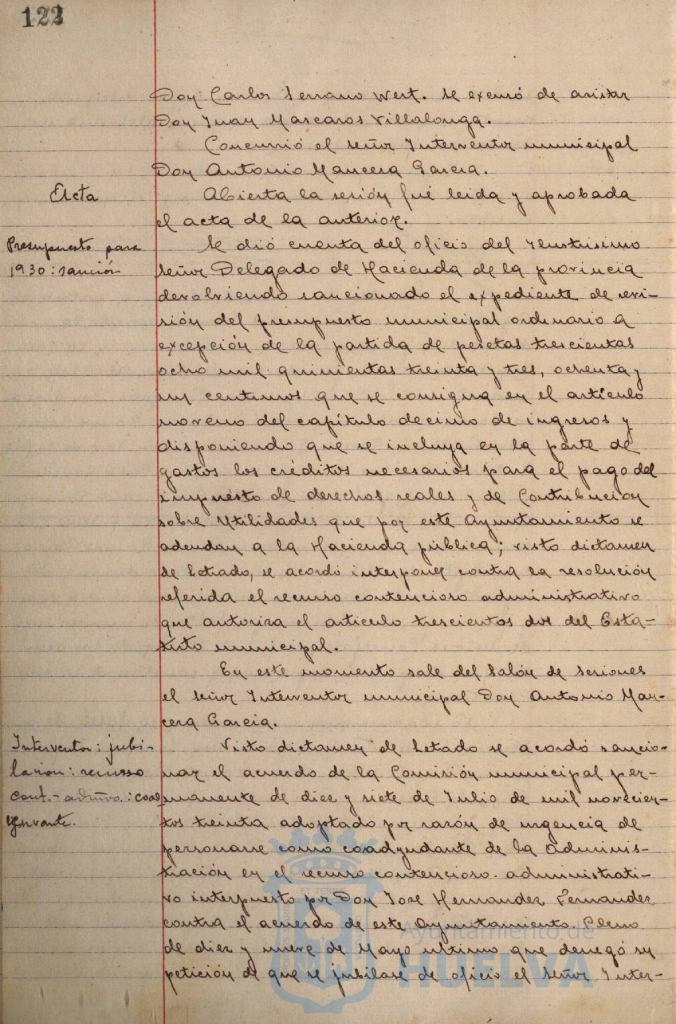 122
Don Carlos Serrano Wert. Se excusó de asistir
Don Juan Mascaros Villalonga.
Concurrió el señor Interventor municipal
Don Antonio Mancera Garcia.
Acta
Abierta la sesión fué leida y aprobada
el acta de la anterior.
Presupuesto para
1930: sanción
Se dió cuenta del oficio del Ilustrisimo
señor Delegado de Hacienda de la provincia
devolviendo sancionado el expediente de revi-
sión del presupuesto municipal ordinario a
excepción de la partida de pesetas trescientas
ocho mil quinientas treinta y tres, ochenta y
un centimos que se consigna en el articulo
noveno del capítulo decimo de ingresos y
disponiendo que se incluya en la parte de
gastos los créditos necesarios para el pago del
impuesto de derechos reales y de Contribucion
sobre Utilidades que por este Ayuntamiento se
adeudan a la Hacienda pública; visto dictamen
de Letrado, se acordó interponer contra la resolución
referida el recurso contencioso administrativo
que autoriza el articulo trescientos dos del Esta-
tuto municipal.
En este momento sale del Salón de sesiones
el señor Interventor municipal Don Antonio Man-
cera Garcia.
Interventor: jubi-
lacion: recurso
cont.-admvo.: coad
yuvante.
Visto dictamen de Letrado se acordó sancio-
nar el acuerdo de la Comisión municipal per-
manente de diez y siete de Julio de mil novecien-
tos treinta adoptado por razón de urgencia de
personarse como coadyudante de la adminis-
tración en el recurso contencioso-administrati-
vo interpuesto por Don José Hernandez Fernandez
contra el acuerdo de este Ayuntamiento Pleno
de diez y nueve de Mayo ultimo que denegó su
petición de que se jubilase de oficio el señor Inter-
Ayuntamiento de
HUELVA